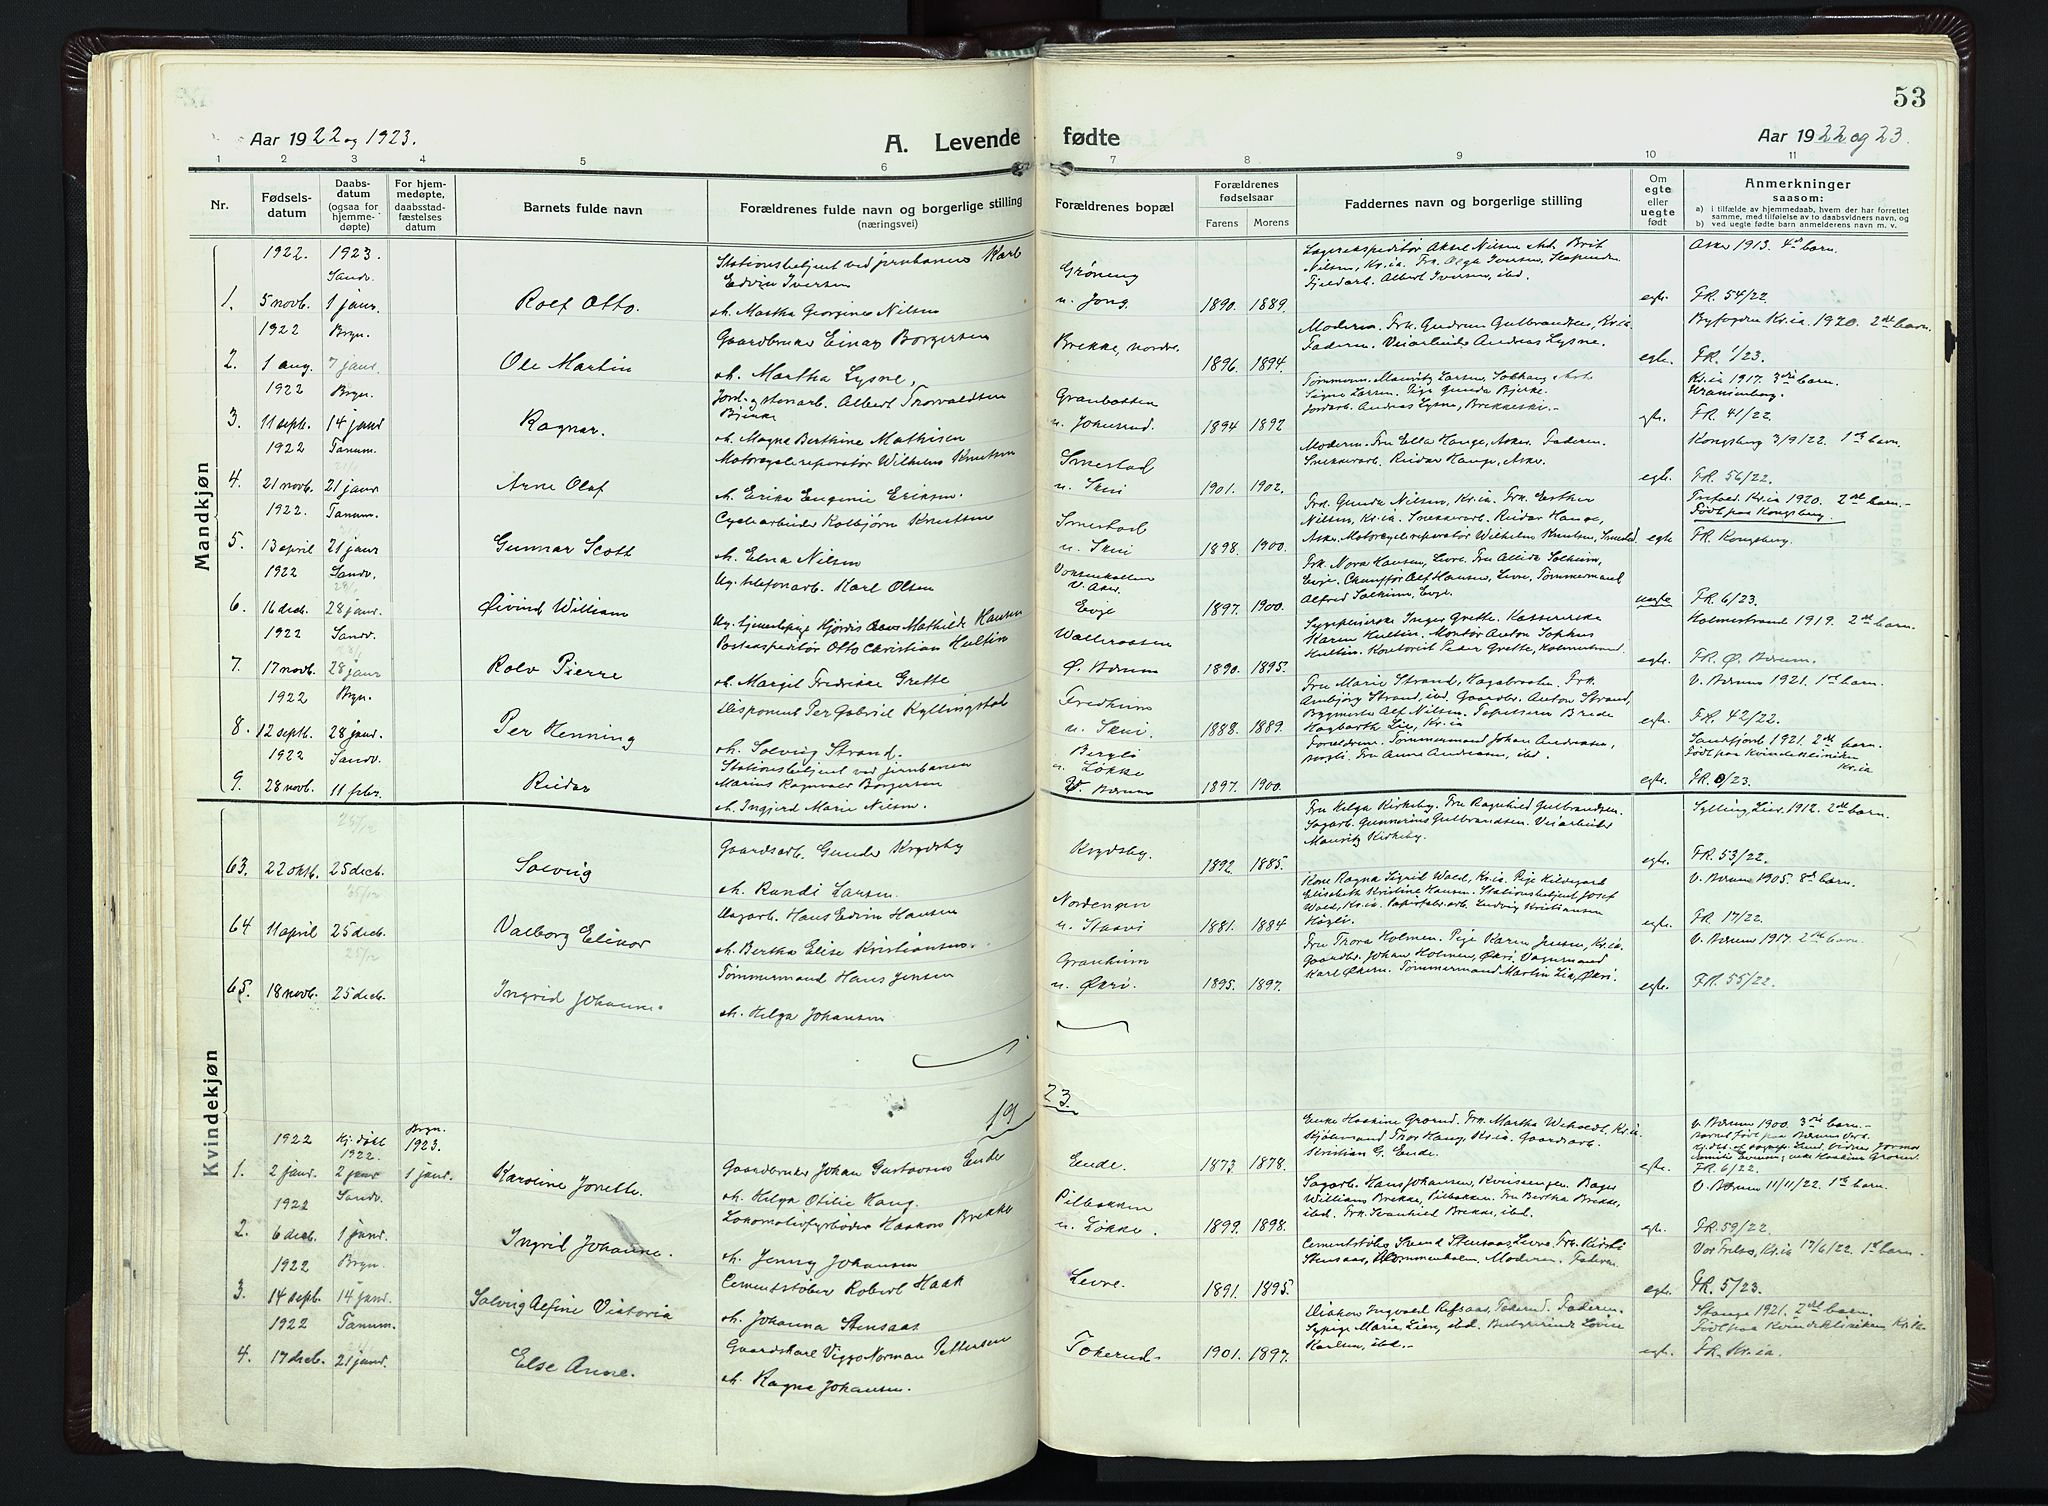 53
Aar 1922 og 1923.
A. Levende fødte
Aar 1922 og 23.
1 2 3 4 5 6 7 8 9 10 11
Nr.
Fødsels-
datum
Daabs-
datum
(ogsaa for
hjemme-
døpte)
For hjem-
medøpte,
daabsstad-
fæstelses
datum
Barnets fulde navn
Forældrenes fulde navn og borgerlige stilling
(næringsvei)
Forældrenes bopæl
Forældrenes
fødselsaar
Farens Morens
Faddernes navn og borgerlige stilling
Om
egte
eller
uegte
født
Anmerkninger
saasom:
a) i tilfælde av hjemmedaab, hvem der har forrettet
samme, med tilføielse av to daabsvidners navn, og
b) ved uegte fødte barn anmelderens navn m. v.
Mandkjøn
1922. 1923. Sandv.
1. 5 novb. 1 janr. Rolf Otto.
Stationsbetjent ved jernbanen Karl
Edvin Iversen
m. Martha Georgine Nilsen
Grøneng
u. Jong. 1890. 1889.
Lagerekspeditør Aksel Nilsen
Nilsen, Kr.ia. Fru Olga Iversen,
Albert Iversen, ibd.
egte.
Asker 1913. 4de barn.
FR. 54/22.
1922 Bryn.
2. 1 aug. 7 janr. Ole Martin
Gaardbruker Einar Borgersen
m. Martha Lysne,
Brekke, nordre. 1896. 1894.
Moderen. Frk. Gudrun Gulbrandsen, Kr.ia.
Faderen. Veiarbeider Andreas Lysne.
egte.
Byfogden Kr.ia. 1920. 2det barn.
FR. 1/23.
1922 Bryn.
3. 11 septb. 14 janr Ragnar.
Jord- og stenarb. Albert Torvaldsen
Bjerke
m. Magna Berthine Mathisen
Granbakken
u. Johnsrud. 1894 1892
Signe Larsen. Pige Gunda Bjerke.
Jordarb. Andreas Lysne,
egte.
Kr.ia 1917. 3die barn.
Uranienborg.
FR. 41/22.
1922 Tanum.
4. 21 novb. 21 janr Arne Olaf
Motorcyclereparatør Wilhelm Knutsen
m. Erika Eugenie Eriksen.
Smestad
u. Skui 1901. 1902.
Moderen. Fru Ella Hauge, Asker. Faderen.
Snekkerarb. Reidar Hauge, Asker.
egte.
Kongsberg 3/9/22. 1ste barn.
FR. 56/22.
1922. Tanum.
5. 13 april 21 janr Gunnar Scott
Cyclearbeider Kolbjørn Knutsen
m. Elna Nilsen
Smestad
u. Skui 1898. 1900.
Frk. Gunda Nilsen, Kr.ia. Frk. Esther
Nilsen, Kr.ia. Snekkerarb. Reidar Hauge,
Asker. Motorcyclereparatør Wilhelm Knutsen, Smestad.
egte
Kr.ia 1920. 2det barn.-
Født paa Kongsberg.
FR. Kongsberg.
1922 Sandv. 28/1
6. 16 decb. 28 janr. Øivind William
Ug. telefonarb. Karl Olsen
Ug. tjenestepige Hjørdis Mathilde Hansen
Voksenkollen
V. Aker.
Evje 1897. 1900.
Frk. Nora Hansen, Levre. Fru Solheim,
Evje. Chauffør Alf Hansen, Levre, Tømmermand
Alfred Solheim, Evje.
uegte
FR. 6/23.
1922 Sandv.
7. 17 novb. 28 janr Rolv Pierre
Postekspeditør Otto Christian Hultin
m. Margit Fredrikke Grette
Ø. Bærum 1890. 1895.
Sypleierske Inger Grette. Kassererske
Karen Hultin. Montør Anton Sophus
Hultin. Kontorist Peder Grette, Holmestrand.
egte.
Holmestrand 1919. 2det barn.
FR. Ø. Bærum.
1922 Bryn.
8. 12 septb. 28 janr. Per Henning
Disponent Per Gabriel Kyllingstad
m. Solveig Strand.
Fredheim
u. Skui. 1888. 1889.
Fru Marie Strand, Frk.
Strand, ibd. Gaardbr. Anton Strand,
Bygmester Alf Nilsen. Brede
Lie, Kr.ia
egte.
V. Bærum 1921. 1ste barn.
FR. 42/22.
1922 Sandv.
9. 28 novb. 11 febr. Reidar
Stationsbetjent ved jernbanen
Marius Ragnvald Borgersen
m. Ingjerd Marie Nilsen.
Bergli
u. Løkke
V. Bærum 1897. 1900.
Forældrene. Tømmermand Johan Andreasen,
Bergli. Fru Anna Andreasen, ibd.
egte.
Sandefjord 1921. 2det barn.
Født paa Kvindeklinikken
Kr.ia
FR. 8/23.
Kvindekjøn
25/12
63. 22 oktb. 25 decb. Solveig
Gaardsarb. Gunder Krydsby
m. Randi Larsen.
Krydsby. 1892. 1885.
Fru Helga Kirkeby. Fru Ragnhild Gulbrandsen.
Sagarb. Gunnerius Gulbrandsen. Veiarbeider
Mauritz Kirkeby.
egte.
Sylling, Lier. 1912. 2det barn.
FR. 53/22.
25/12
64 11 april 25 decb. Valborg Elinor
Dagarb. Hans Edvin Hansen
m. Bertha Elise Kristiansen.
Nordengen
u. Staavi 1881. 1884
Kone Ragna Sigrid Wold, Kr.ia. Pige Hildegard
Elisabeth Kristine Hansen. Stationsbetjent Josef
Wold, Kr.ia. Papirfabr.arb. Ludvig Kristiansen
egte.
V. Bærum 1905. 8de barn.
FR 17/22.
25/12
65. 18 novb. 25 decb. Ingrid Johanne.
Tømmermand Hans Jensen
m. Helga Johansen
Granheim
u. Økri. 1895. 1897.
Fru Thora Holmen. Pige Karen Jensen, Kr.ia.
Gaardbr. Johan Holmen, Økri. Vognmand
Karl Økern. Tømmermand Martin Lie, Økri.
egte.
V. Bærum 1917. 2det barn.
FR. 55/22.
19 23.
1922 Hj. døbt 1922. Bryn. 1923.
1. 2 janr. 2 janr 1 janr. Karoline Jonette.
Gaardbruker Johan Gustavsen Ende
m. Helga Otilie Haug.
Ende. 1873 1878.
Enke Haakine Grorud. Frk. Martha Kr.ia.
Thor Haug, Kr.ia. Gaardsarb.
Kristian G. Ende.
egte.
V. Bærum 1900. 3die barn.-
FR. 6/22.
1922 Sandv.
2. 6 decb. 1 janr. Ingrid Johanne.
Lokomotivfyrbøder Haakon Brekke
m. Jenny Johansen
Pilbakken
u. Løkke. 1899. 1898.
Sagarb. Hans Johansen, Bager
William Brekke, Pilbakken. Fru Bertha Brekke,
ibd. Frk. Brekke, ibd.
egt.
V. Bærum 11/11/22. 1ste barn.
FR. 59/22.
1922 Bryn.
3. 14 septb. 14 janr. Solveig Alfine Victoria
Cementstøber Robert Haak
m. Johanna Stensaas
Levre. 1891. 1895.
Cementstøber Svend Stensaas, Levre. Frk. Kirsti
Stensaas, Moderen. Faderen.
egte.
Vor Frelsers, Kr.ia 17/6/22. 1ste barn.
FR. 5/23.
1922 Tanum.
4. 17 decb. 21 janr. Else Anne.
Gaardskarl Viggo Norman Pettersen
m. Ragna Johansen.
Tokerud. 1901. 1897.
Diakon Ingvald Refsaas, Tokerud. Faderen.
Sypige Marie Lien, ibd. Bestyrerinde Lovise
Karlsen, ibd.-
egte.
Stange 1921. 2det barn.
Født paa Kvindeklinikken, Kr.ia
FR. Kr.ia.